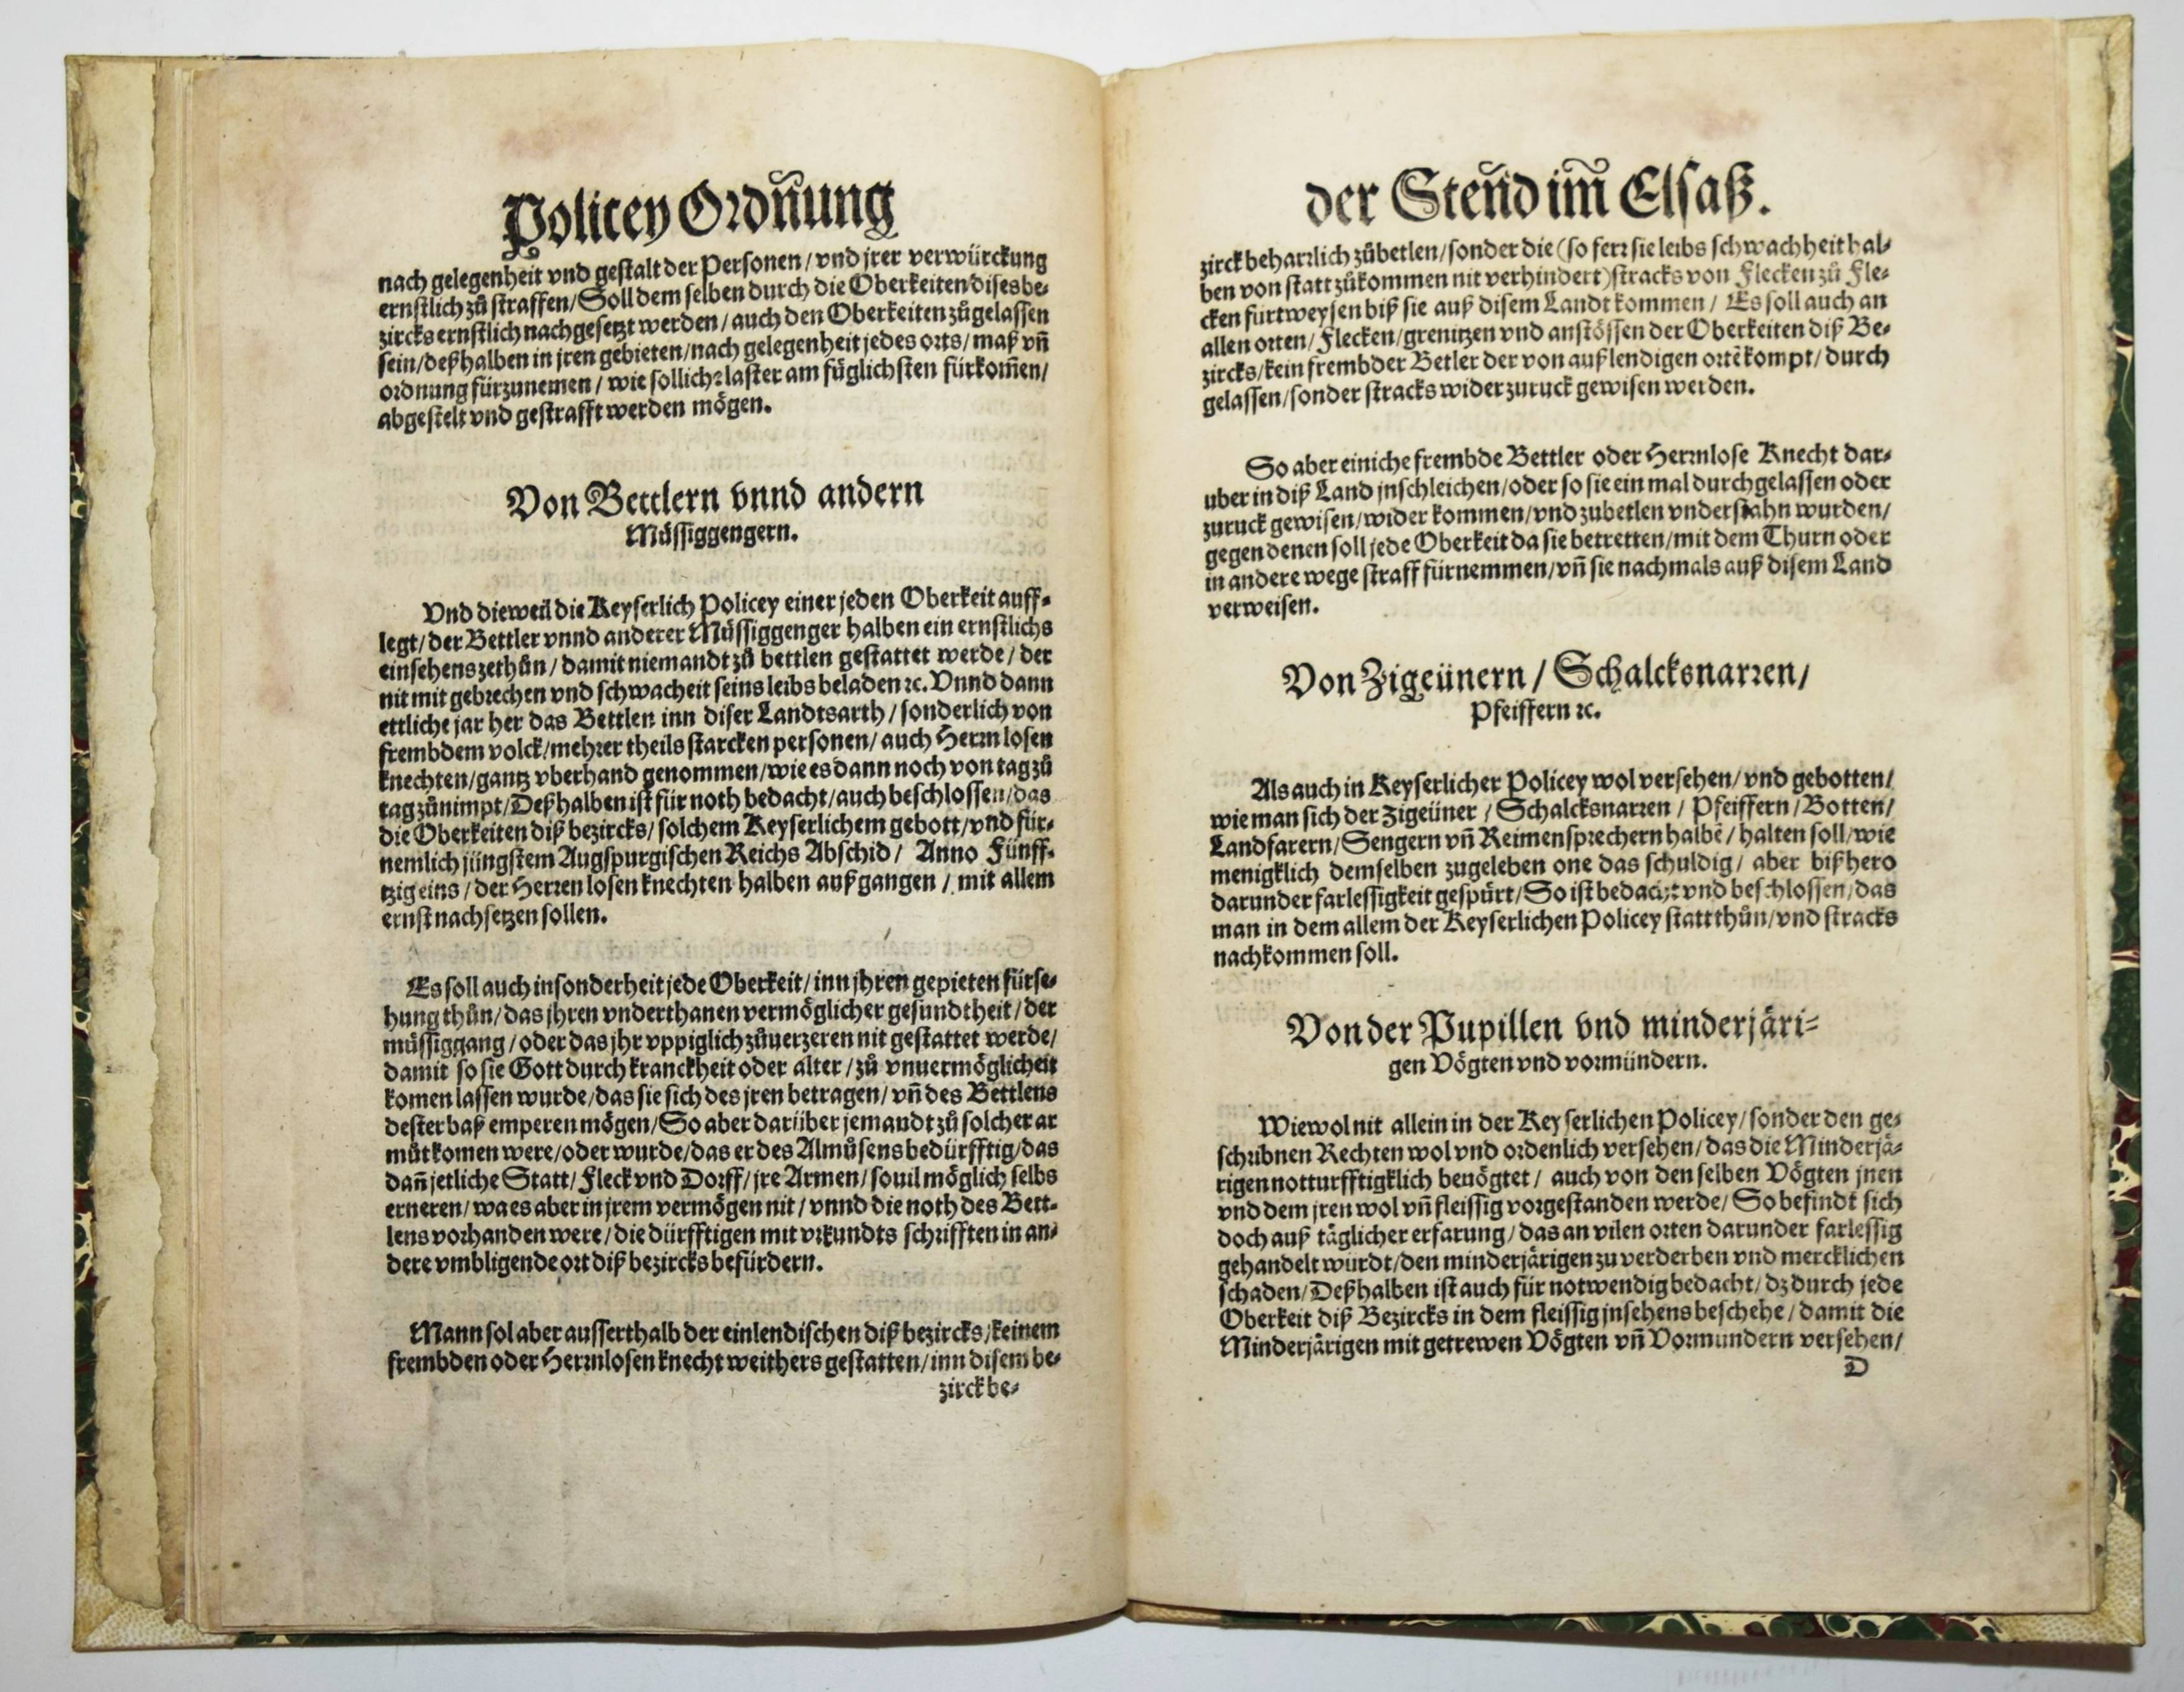 Policey Ordn̄ung
nach gelegenheit vnd gestalt der Personen / vnd jrer verwürckung
ernstlich zů straffen / Soll dem selben durch die Oberkeiten dises be-
zircks ernstlich nachgesetzt werden / auch den Oberkeiten zůgelassen
sein / deßhalben in jren gebieten / nach gelegenheit jedes orts / maß vn̄
ordnung fürzunemen / wie sollichs laster am füglichsten fürkom̄en /
abgestelt vnd gestrafft werden mögen.
Von Bettlern vnnd andern
Müssiggengern.
Vnd dieweil die Keyserlich Policey einer jeden Oberkeit auff-
legt / der Bettler vnnd anderer Müssiggenger halben ein ernstlichs
einsehens zethůn / damit niemandt zů bettlen gestattet werde / der
nit mit gebrechen vnd schwacheit seins leibs beladen ꝛc. Vnnd dann
ettliche jar her das Bettlen inn diser Landtsarth / sonderlich von
frembdem volck / mehrer theils starcken personen / auch Herrnlosen
knechten / gantz vberhand genommen / wie es dann noch von tag zů
tag zůnimpt / Deßhalben ist für noth bedacht / auch beschlossen / das
die Oberkeiten diß bezircks / solchem Keyserlichem gebott / vnd für-
nemlich jüngstem Augspurgischen Reichs Abschid / Anno Fünff-
tzig eins / der Herren losen knechten halben außgangen / mit allem
ernst nachsetzen sollen.
Es soll auch insonderheit jede Oberkeit / inn jhren gepieten fürse-
hung thůn / das jhren vnderthanen vermöglicher gesundtheit / der
müssiggang / oder das jhr vppiglich zůuerzeren nit gestattet werde /
damit so sie Gott durch kranckheit oder alter / zů vnuermöglicheit
komen lassen wurde / das sie sich des jren betragen / vn̄ des Bettlens
dester baß emperen mögen / So aber darüber jemandt zů solcher ar
můt komen were / oder wurde / das er des Almůsens bedürfftig / das
dan̄ jetliche Statt / Fleck vnd Dorff / jre Armen / souil möglich selbs
erneren / wa es aber in jrem vermögen nit / vnnd die noth des Bett-
lens vorhanden were / die dürfftigen mit vrkundts schrifften in an-
dere vmbligende ort diß bezircks befürdern.
Mann sol aber ausserthalb der einlendischen diß bezircks / keinem
frembden oder Herrnlosen knecht weithers gestatten / inn disem be-
zirck be-
der Sten̄d im̄ Elsaß.
zirck beharrlich zůbetlen / sonder die (so ferr sie leibs schwachheit hal-
ben von statt zůkommen nit verhindert) stracks von Flecken zů Fle-
cken fürtweysen biß sie auß disem Landt kommen / Es soll auch an
allen orten / Flecken / grenitzen vnd anstössen der Oberkeiten diß Be-
zircks / kein frembder Betler der von außlendigen ortē kompt / durch
gelassen / sonder stracks wider zuruck gewisen werden.
So aber einiche frembde Bettler oder Herrnlose Knecht dar-
uber in diß Land jnschleichen / oder so sie ein mal durchgelassen oder
zuruck gewisen / wider kommen / vnd zubetlen vnderstahn wurden /
gegen denen soll jede Oberkeit da sie betretten / mit dem Thurn oder
in andere wege straff fürnemmen / vn̄ sie nachmals auß disem Land
verweisen.
Von Zigeünern / Schalcksnarren /
Pfeiffern ꝛc.
Als auch in Keyserlicher Policey wol versehen / vnd gebotten /
wie man sich der Zigeüner / Schalcksnarren / Pfeiffern / Botten /
Landfarern / Sengern vn̄ Reimensprechern halbē / halten soll / wie
menigklich demselben zugeleben one das schuldig / aber bißhero
darunder farlessigkeit gespürt / So ist bedacht vnd beschlossen / das
man in dem allem der Keyserlichen Policey statt thůn / vnd stracks
nachkommen soll.
Von der Pupillen vnd minderjäri-
gen Vögten vnd vormündern.
Wiewol nit allein in der Keyserlichen Policey / sonder den ge-
schribnen Rechten wol vnd ordenlich versehen / das die Minderjä-
rigen notturfftigklich beuögtet / auch von den selben Vögten jnen
vnd dem jren wol vn̄ fleissig vorgestanden werde / So befindt sich
doch auß täglicher erfarung / das an vilen orten darunder farlessig
gehandelt würdt / den minderjärigen zu verderben vnd mercklichen
schaden / Deßhalben ist auch für notwendig bedacht / dz durch jede
Oberkeit diß Bezircks in dem fleissig jnsehens beschehe / damit die
Minderjärigen mit getrewen Vögten vn̄ Vormundern versehen /
D